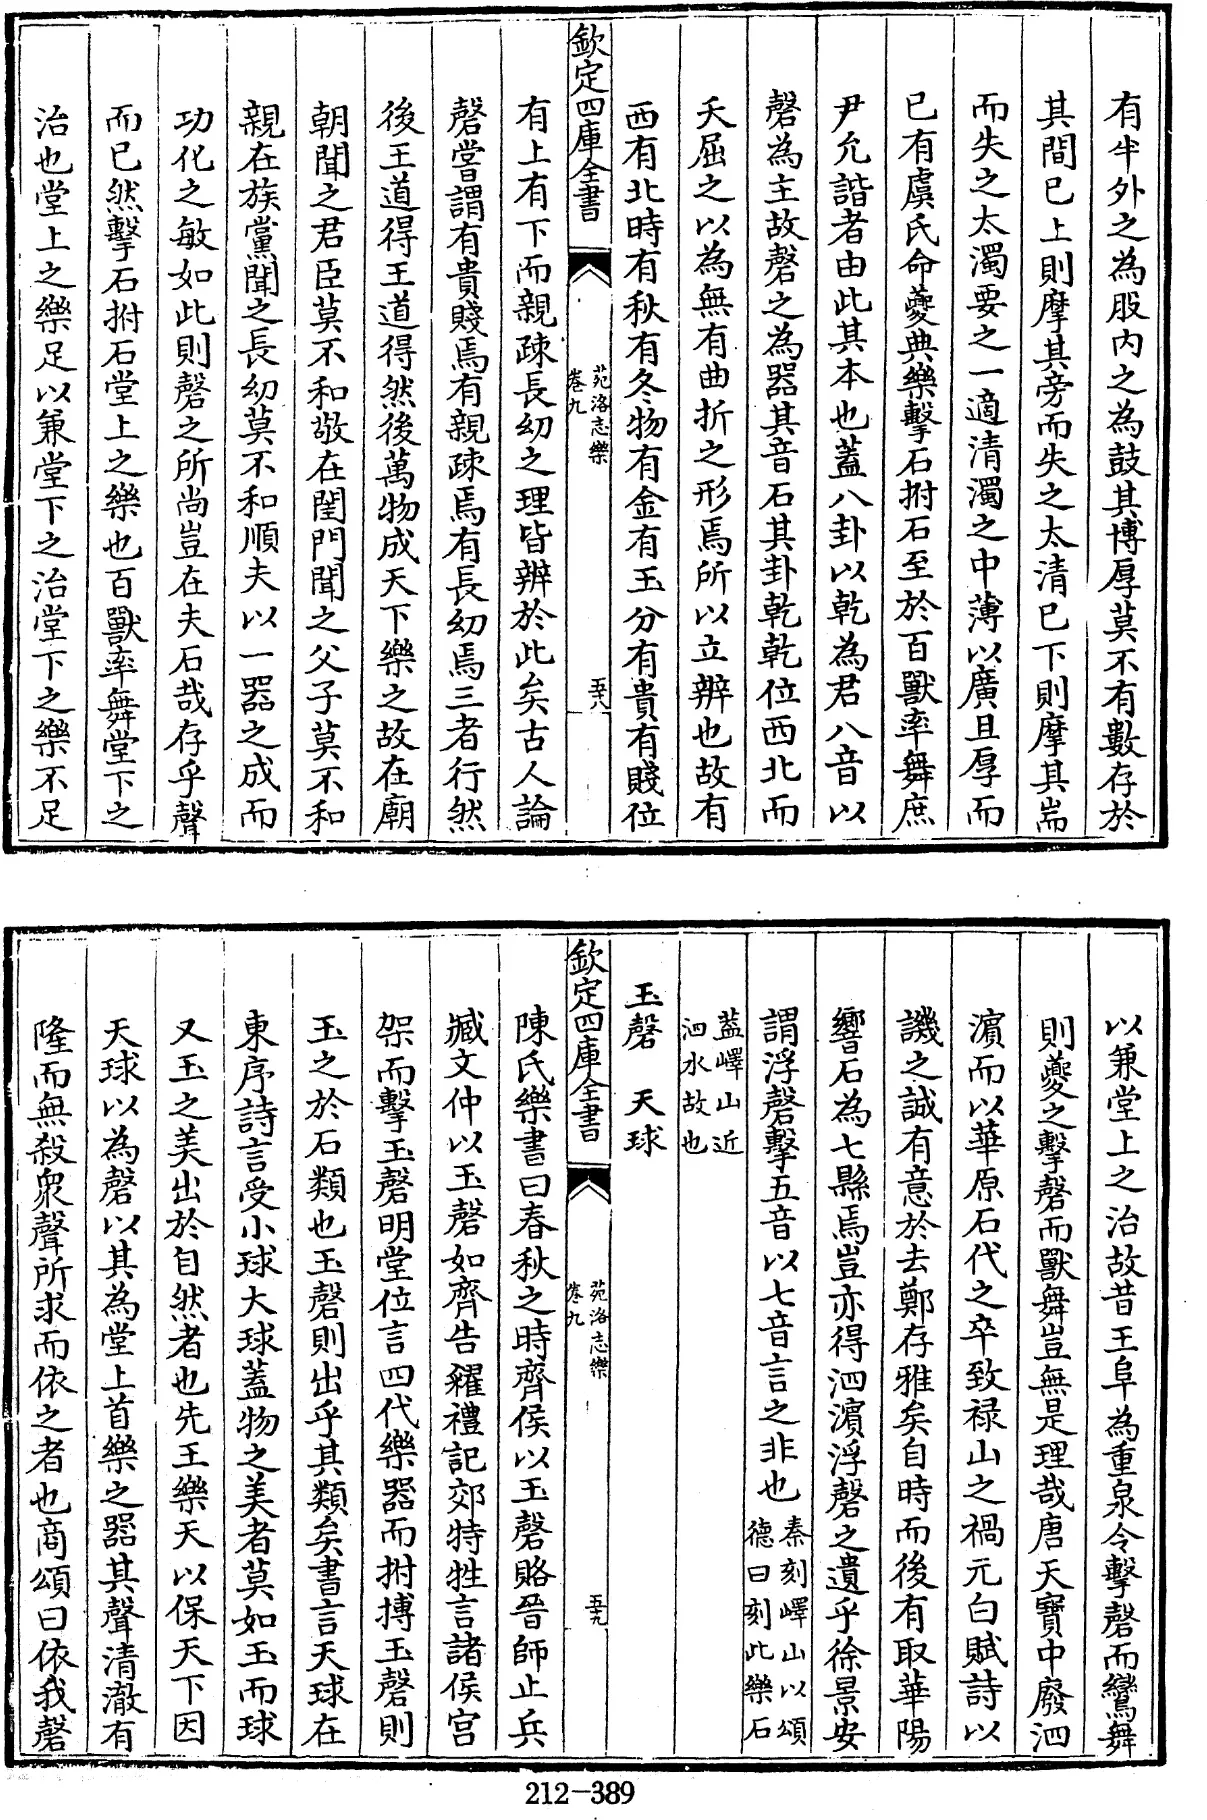 有半外之為股内之為鼓其博厚莫不有數存於
其間已上則摩其旁而失之太清已下則摩其耑
而失之太濁要之一適清濁之中薄以廣且厚而
已有虞氏命夔典樂擊石拊石至於百獸率舞庶
尹允諧者由此其本也蓋八卦以乾為君八音以
磬為主故磬之為器其音石其卦乾乾位西北而
夭屈之以為無有曲折之形焉所以立辨也故有
西有北時有秋有冬物有金有玉分有貴有賤位
欽定四庫全書
苑洛志樂
卷九
五十八
有上有下而親疎長幼之理皆辨於此矣古人論
磬嘗謂有貴賤焉有親疎焉有長幼焉三者行然
後王道得王道得然後萬物成天下樂之故在廟
朝聞之君臣莫不和敬在閨門聞之父子莫不和
親在族黨聞之長幼莫不和順夫以一器之成而
功化之敏如此則磬之所尚豈在夫石哉存乎聲
而已然擊石拊石堂上之樂也百獸率舞堂下之
治也堂上之樂足以兼堂下之治堂下之樂不足
以兼堂上之治故昔王阜為重泉令擊磬而鸞舞
則夔之擊磬而獸舞豈無是理哉唐天寶中廢泗
濱而以華原石代之卒致禄山之禍元白賦詩以
譏之誠有意於去鄭存雅矣自時而後有取華陽
響石為七縣焉豈亦得泗濱浮磬之遺乎徐景安
謂浮磬擊五音以七音言之非也
秦刻嶧山以頌
德曰刻此樂石
蓋嶧山近
泗水故也
玉磬　天球
欽定四庫全書
苑洛志樂
卷九
五十九
陳氏樂書曰春秋之時齊侯以玉磬賂晉師止兵
臧文仲以玉磬如齊告糴禮記郊特牲言諸侯宫
架而擊玉磬明堂位言四代樂器而拊搏玉磬則
玉之於石類也玉磬則出乎其類矣書言天球在
東序詩言受小球大球蓋物之美者莫如玉而球
又玉之美出於自然者也先王樂天以保天下因
天球以為磬以其為堂上首樂之器其聲清澈有
隆而無殺衆聲所求而依之者也商頌曰依我磬
212-389